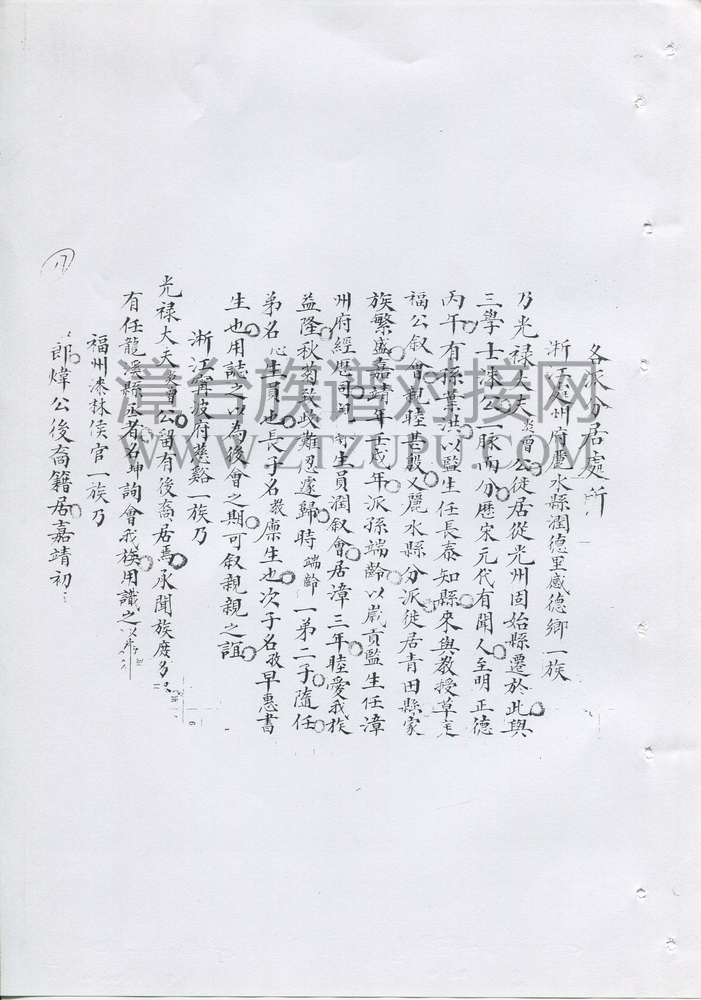 各派分居處所
浙江處州府麗水縣潤德里感德鄉一族
乃光禄大夫贊曾公徙居從光州固始縣遷於此與
三學士涑公一脉而分歷宋元代有聞人至明正德
丙午有孫葉洪以監生任長泰知縣來與教授草
福公叙會親睦甚殷又麗水縣分派徙居青田縣家
族繁盛嘉靖年壬戌年派孫端齡以歲貢監生任漳
州府經歷司生員潤叙會居漳三年睦愛我族
益隆秋菊致歧難忍遽歸時端齡一弟二子隨任
弟名心生員也長子名教廪生也次子名孜早惠書
生也用誌之以為後會之期可叙親親之誼
浙江甯波府慈谿一族乃
光禄大夫贊曾公留有後裔居焉承聞族度
有任龍溪縣丞者名坤詢會我族用識之以
福州漆林侯官一族乃
郎煒公後裔籍居嘉靖初
漳台族谱对接网
WWW.ZTZUPU.COM